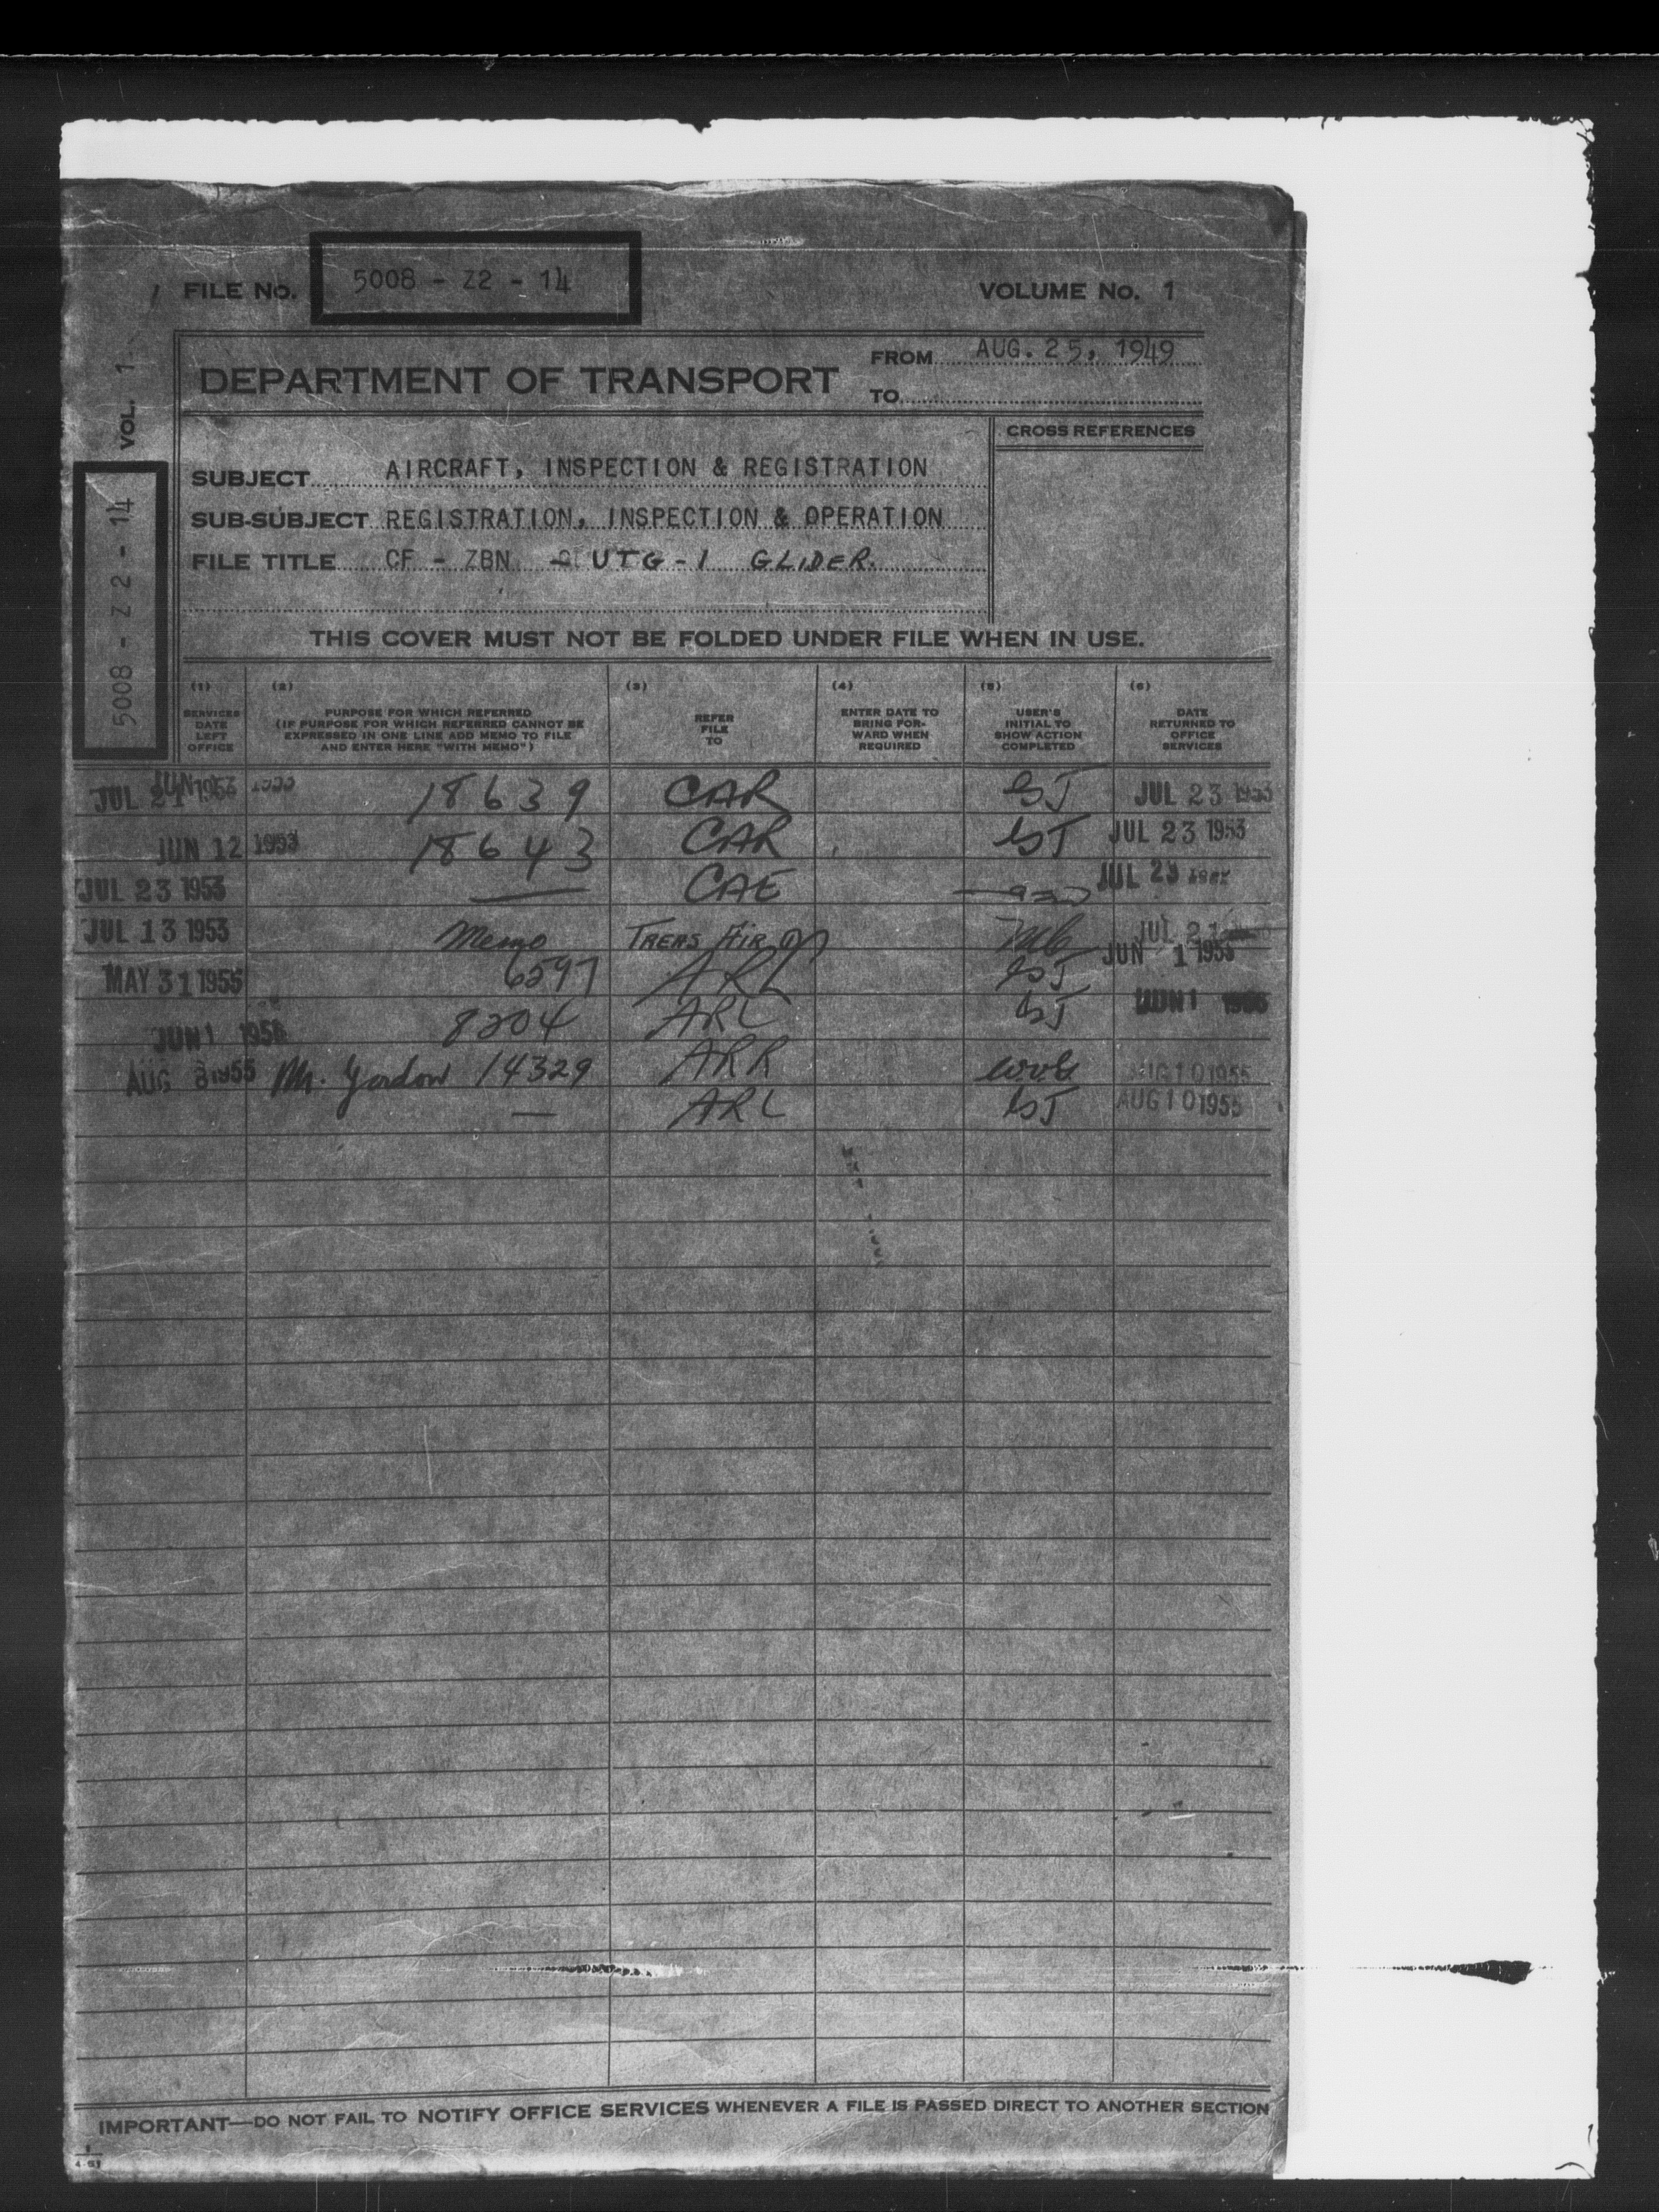 FILE No. 5008 - Z2 - 14
VOLUME No. 1
VOL. 1
5008 - Z 2 - 14
DEPARTMENT OF TRANSPORT
FROM AUG. 25, 1949
TO
CROSS REFERENCES
SUBJECT AIRCRAFT, INSPECTION & REGISTRATION
SUB-SUBJECT REGISTRATION, INSPECTION & OPERATION
FILE TITLE CF - ZBN - UTG-1 GLIDER.
THIS COVER MUST NOT BE FOLDED UNDER FILE WHEN IN USE.
(1) SERVICES DATE LEFT OFFICE
(2) PURPOSE FOR WHICH REFERRED (IF PURPOSE FOR WHICH REFERRED CANNOT BE EXPRESSED IN ONE LINE ADD MEMO TO FILE AND ENTER HERE "WITH MEMO")
(3) REFER FILE TO
(4) ENTER DATE TO BRING FORWARD WHEN REQUIRED
(5) USER'S INITIAL TO SHOW ACTION COMPLETED
(6) DATE RETURNED TO OFFICE SERVICES
JUL 21 18639 CAR JUL 23 1953
JUN 12 1953 18643 CAR JUL 23 1953
JUL 23 1953 — CAE JUL 23
JUL 13 1953 Memo TREAS AIR JUL 21
MAY 31 1955 6297 ARL JUN 1 1955
JUN 1 8204 ARL JUN 1
AUG 8 1955 Mr. Gordon 14329 ARR AUG 10 1955
— ARL AUG 10 1955
IMPORTANT—DO NOT FAIL TO NOTIFY OFFICE SERVICES WHENEVER A FILE IS PASSED DIRECT TO ANOTHER SECTION